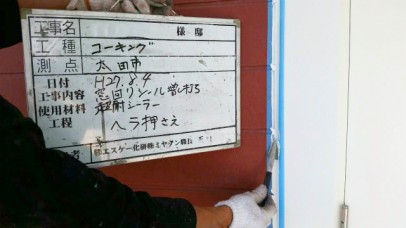 工事名 様 邸
工種 コーキング
測点 太田市
日付 H27.8.4
工事内容 窓回りシール増し打ち
使用材料 シーラー
工程 ヘラ押さえ
者 エスケー化研㈱ミヤケン